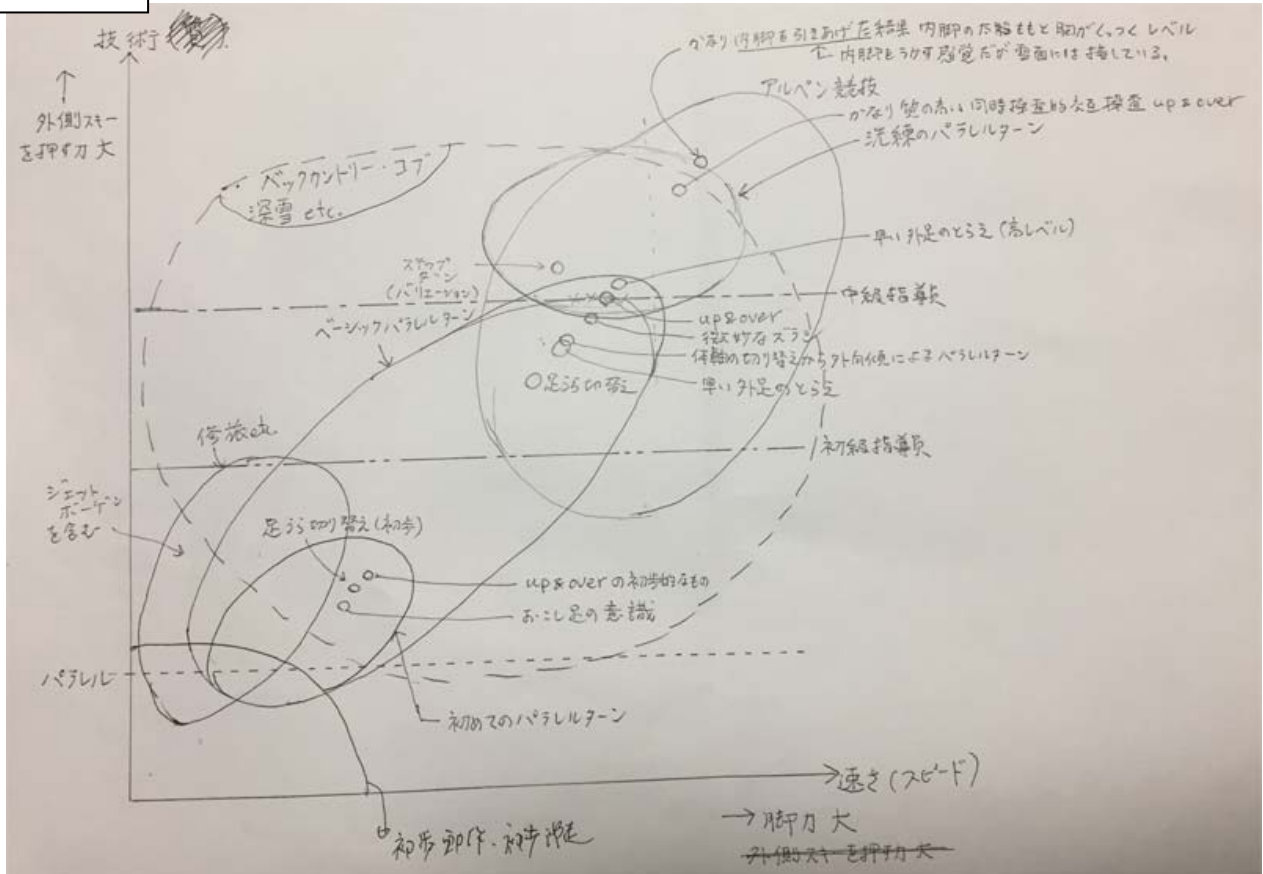 技術
外側スキー
を押す力 大
かなり内脚を引きあげた結果 内脚の太ももと胸がくっつくレベル
内脚をうかす感覚だが雪面には接している。
アルペン競技
かなり質の高い同時操作的交互操作 up & over
洗練のパラレルターン
バックカントリー・コブ
深雪 etc.
早い外足のとらえ (高レベル)
ステップ
ターン
(バリエーション)
中級指導員
ベーシックパラレルターン
up & over
微妙なズラシ
体軸の切り替えから外向傾によるパラレルターン
足うら切替え
早い外足のとらえ
修旅etc
初級指導員
ジェット
ボーゲン
を含む
足うら切り替え(初歩)
up & over の初歩的なもの
おこし足の意識
パラレル
初めてのパラレルターン
速さ (スピード)
初歩動作・初歩滑走
→ 脚力 大
外側スキーを押す力 大